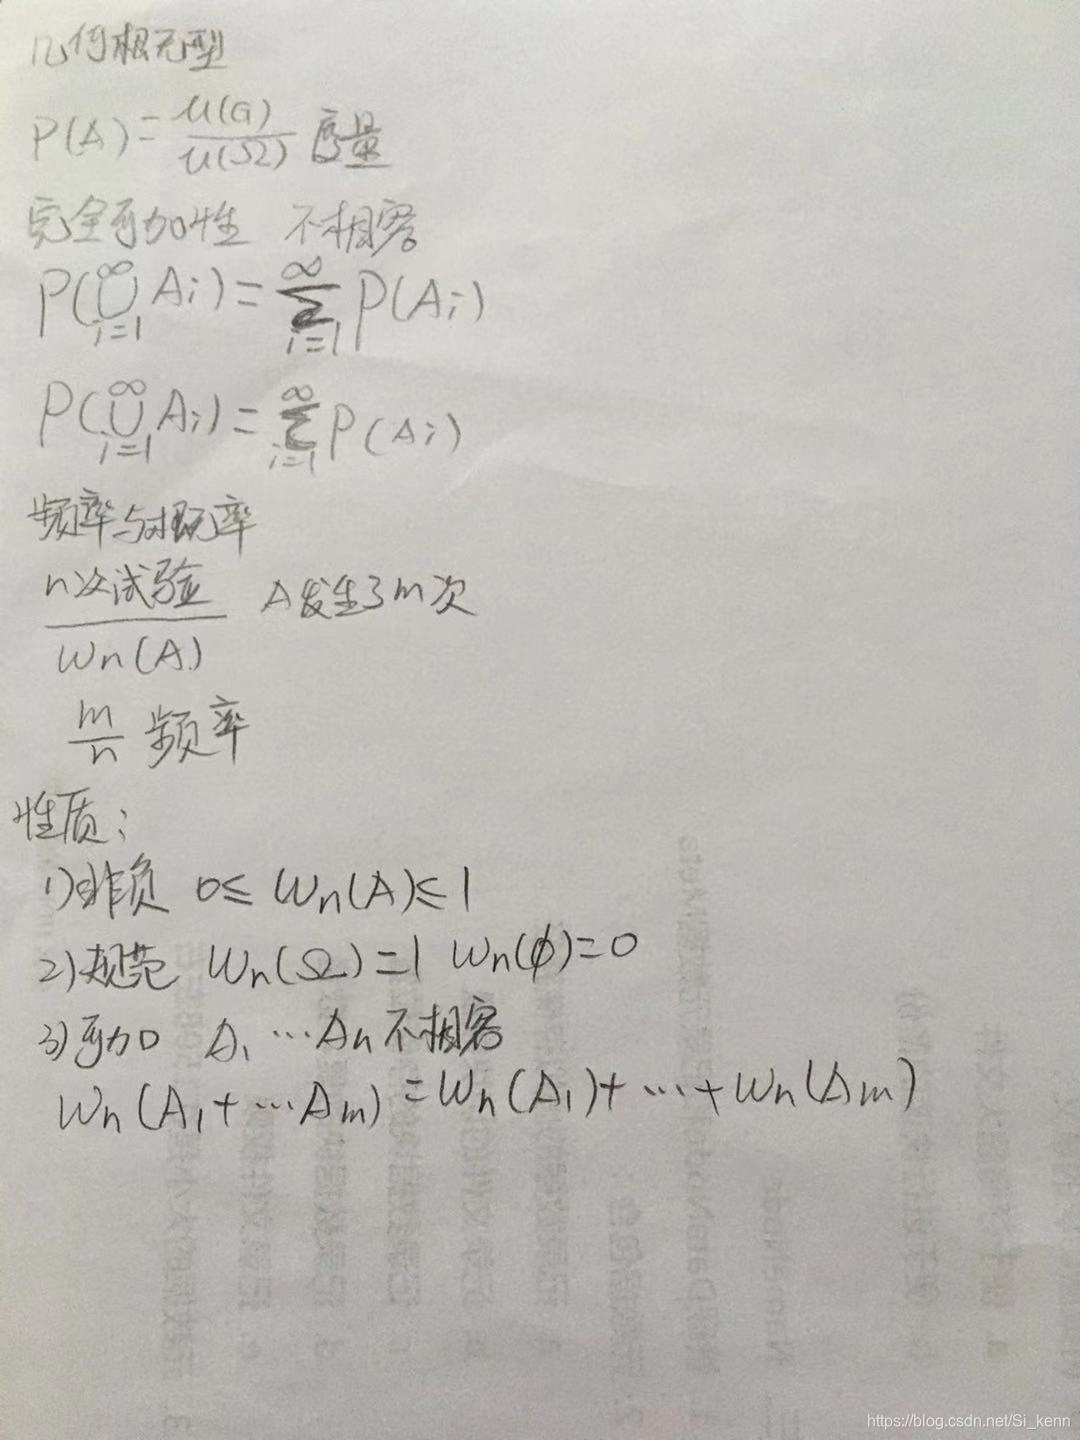 几何概型
P(A)=μ(G)/μ(Ω) 度量
完全可加性 不相容
P(∪_{i=1}^{∞} Ai)=∑_{i=1}^{∞} P(Ai)
P(∪_{i=1}^{∞} Ai)=∑_{i=1}^{∞} P(Ai)
频率与概率
n次试验 A发生了m次
Wn(A)
m/n 频率
性质:
1)非负 0≤Wn(A)≤1
2)规范 Wn(Ω)=1 Wn(ϕ)=0
3)可加 A1…An不相容
Wn(A1+…Am)=Wn(A1)+…+Wn(Am)
https://blog.csdn.net/Si_kenn